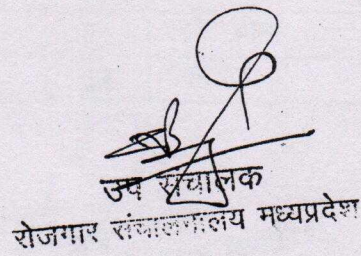 उप संचालक
रोजगार संचालनालय मध्यप्रदेश